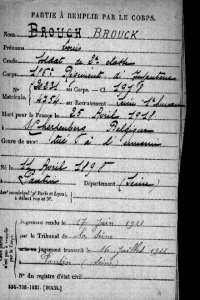 PARTIE À REMPLIR PAR LE CORPS.
Nom BROUCH BROUCK
Prénoms Louis
Grade Soldat de 2e classe
Corps Régiment d'Infanterie
N° au Corps. — Cl. 1918
Matricule. 4254 au Recrutement Seine
Mort pour la France le 25 Avril 1918
à Belgique
Genre de mort tué à l'ennemi
Né le 14 Avril 1898
à Pantin Département (Seine)
Arr' municipal (p' Paris et Lyon), à défaut rue et N°.
Jugement rendu le 17 juin 1921
par le Tribunal de la Seine
jugement transcrit le 16 juillet 1921
Pantin Seine
N° du registre d'état civil
534-708-1921. [26434.]